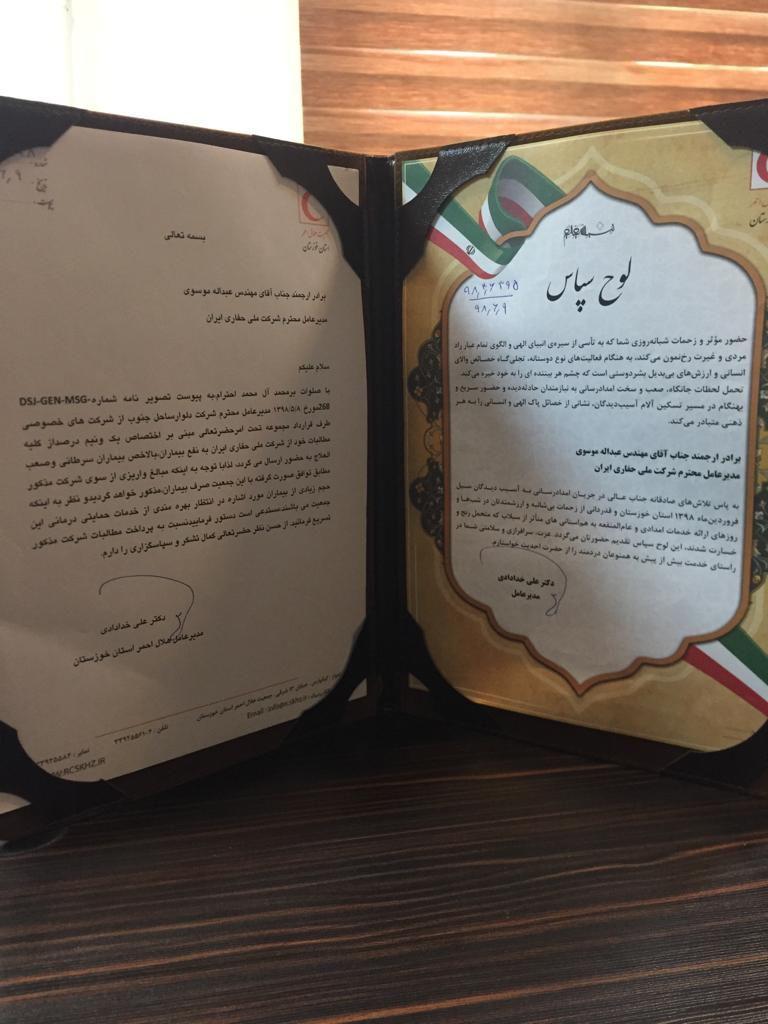 بسمه تعالی
جمعیت هلال احمر
استان خوزستان
برادر ارجمند جناب آقای مهندس عبداله موسوی
مدیرعامل محترم شرکت ملی حفاری ایران
سلام علیکم
با صلوات برمحمد آل محمد احترام،به پیوست تصویر نامه شماره-DSJ-GEN-MSG
268مورخ ۱۳۹۸/۵/۸ مدیرعامل محترم شرکت دلوارساحل جنوب از شرکت های خصوصی
طرف قرارداد مجموعه تحت امرحضرتعالی مبنی بر اختصاص یک ونیم درصداز کلیه
مطالبات خود از شرکت ملی حفاری ایران به نفع بیماران،بالاخص بیماران سرطانی وصعب
العلاج به حضور ارسال می گردد، لذابا توجه به اینکه مبالغ واریزی از سوی شرکت مذکور
مطابق توافق صورت گرفته با این جمعیت صرف بیماران،مذکور خواهد گردیدو نظر به اینکه
حجم زیادی از بیماران مورد اشاره در انتظار بهره مندی از خدمات حمایتی درمانی این
جمعیت می باشند،مستدعی است دستور فرماییدنسبت به پرداخت مطالبات شرکت مذکور
تسریع فرمائید. از حسن نظر حضرتعالی کمال تشکر و سپاسگزاری را دارم.
دکتر علی خدادادی
مدیرعامل هلال احمر استان خوزستان
کیانپارس، خیابان ۱۳ شرقی، جمعیت هلال احمر استان خوزستان
تلفن : ۳۳۹۲۵۵۶۱-۲
Email : info@rcskhz.ir
WW.RCSKHZ.IR
لوح سپاس
۹۸٫۴٫۶۲۹۵
۹۸٫۶٫۹
حضور مؤثر و زحمات شبانه‌روزی شما که به تأسی از سیره‌ی انبیای الهی و الگوی تمام عیار راد
مردی و غیرت رخ‌نمون می‌کند، به هنگام فعالیت‌های نوع دوستانه، تجلی‌گاه خصائص والای
انسانی و ارزش‌های بی‌بدیل بشردوستی است که چشم هر بیننده ای را به خود خیره می‌کند.
تحمل لحظات جانکاه، صعب و سخت امدادرسانی به نیازمندان حادثه‌دیده و حضور سریع و
بهنگام در مسیر تسکین آلام آسیب‌دیدگان، نشانی از خصائل پاک الهی و انسانی را به هر
ذهنی متبادر می‌کند.
برادر ارجمند جناب آقای مهندس عبداله موسوی
مدیرعامل محترم شرکت ملی حفاری ایران
به پاس تلاش‌های صادقانه جناب عالی در جریان امدادرسانی به آسیب دیدگان سیل
فروردین‌ماه ۱۳۹۸ استان خوزستان و قدردانی از زحمات بی‌شائبه و ارزشمندتان در شب‌ها و
روزهای ارائه خدمات امدادی و عام‌المنفعه به هم‌استانی های متأثر از سیلاب که متحمل رنج و
خسارت شدند، این لوح سپاس تقدیم حضورتان می‌گردد. عزت، سرافرازی و سلامتی شما در
راستای خدمت بیش از پیش به همنوعان دردمند را از حضرت احدیت خواستارم.
دکتر علی خدادادی
مدیرعامل